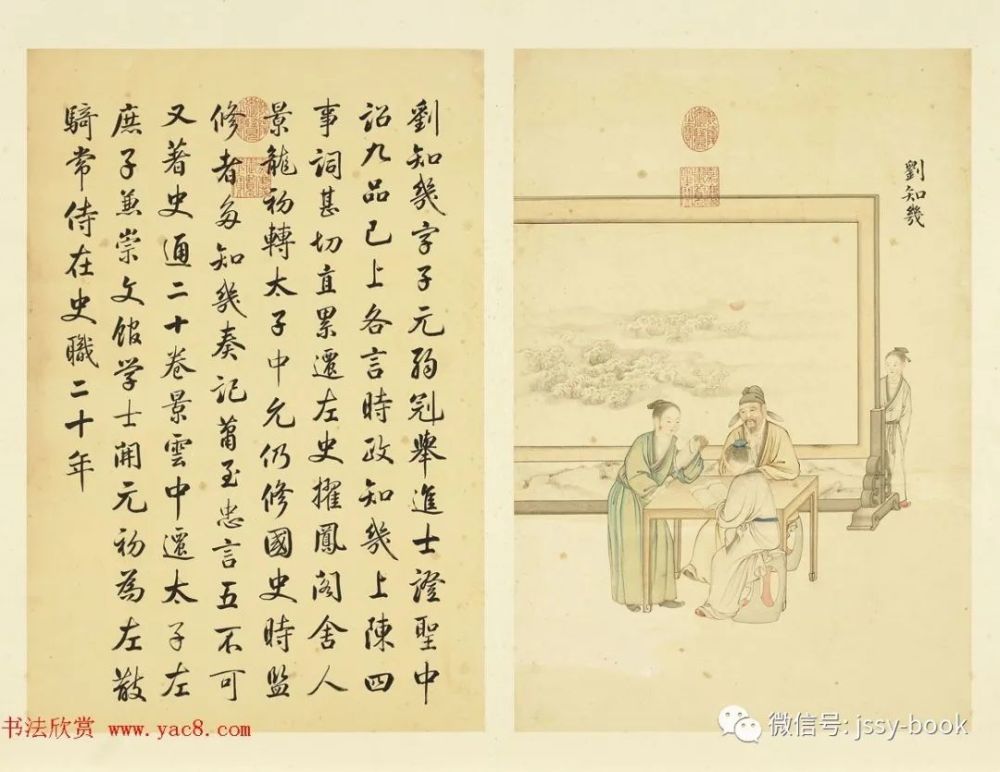 劉知幾字子元弱冠舉進士證聖中
詔九品已上各言時政知幾上陳四
事詞甚切直累遷左史擢鳳閣舍人
景龍初轉太子中允仍修國史時監
修者多知幾奏記蕭至忠言五不可
又著史通二十卷景雲中遷太子左
庶子兼崇文館学士開元初為左散
騎常侍在史職二十年
劉知幾
书法欣赏 www.yac8.com
微信号: jssy-book